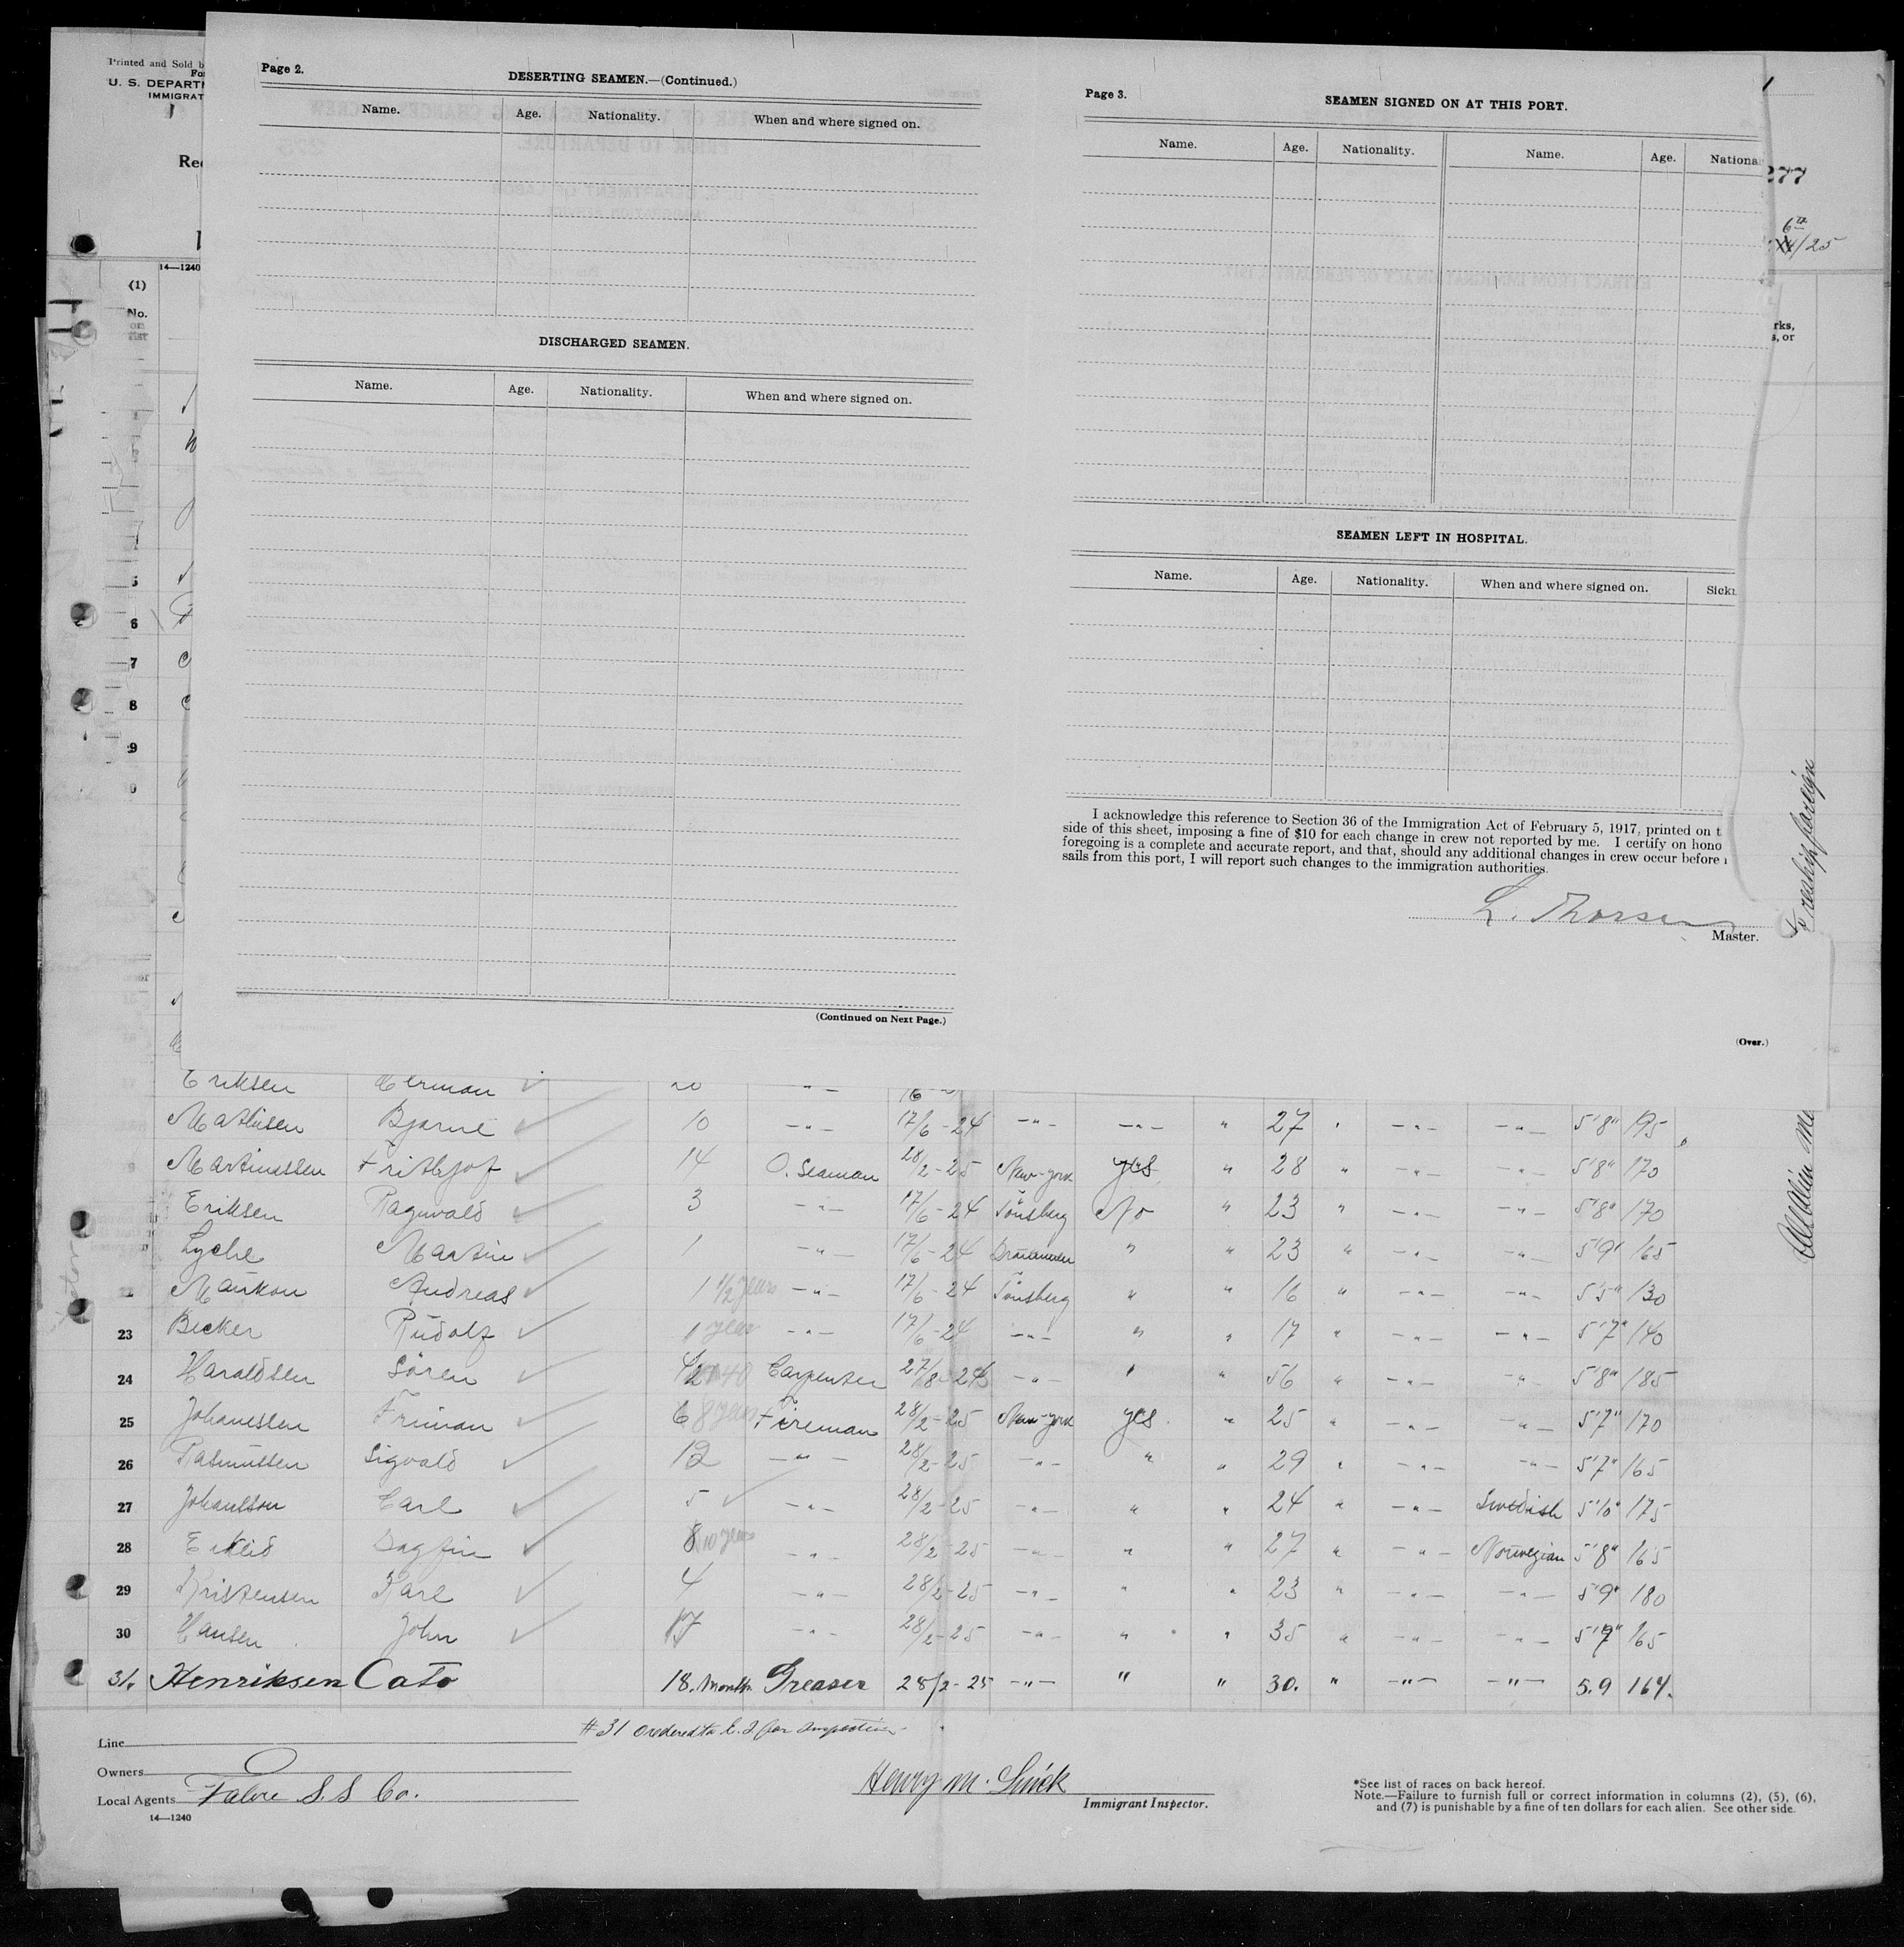 Printed and Sold b
U. S. DEPART
IMMIGRAT
(1)
No.
14—1240
277
6th
/25
rks,
s, or
Page 2.
DESERTING SEAMEN.—(Continued.)
Name. Age. Nationality. When and where signed on.
DISCHARGED SEAMEN.
Name. Age. Nationality. When and where signed on.
(Continued on Next Page.)
Page 3.
SEAMEN SIGNED ON AT THIS PORT.
Name. Age. Nationality. Name. Age. Nationa
SEAMEN LEFT IN HOSPITAL.
Name. Age. Nationality. When and where signed on. Sickn
I acknowledge this reference to Section 36 of the Immigration Act of February 5, 1917, printed on t
side of this sheet, imposing a fine of $10 for each change in crew not reported by me. I certify on hono
foregoing is a complete and accurate report, and that, should any additional changes in crew occur before
sails from this port, I will report such changes to the immigration authorities.
L. Thorsen
Master.
(Over.)
5
6
7
8
9
Eriksen Herman -"-
Mathisen Bjarne 10 -"- 17/6-24 -"- -"- " 27 " -"- -"- 5'8" 195
Martinussen Frithjof 14 O. Seaman 28/2-25 New-york yes " 28 " -"- -"- 5'8" 170
Eriksen Ragnvald 3 -"- 17/6-24 Tönsberg No " 23 " -"- -"- 5'8" 170
Lyche Martin 1 -"- 17/6-24 Drammen " " 23 " -"- -"- 5'9" 165
Andreas 1 1/2 years -"- 17/6-24 Tönsberg " " 16 " -"- -"- 5'5" 130
23 Becker Rudolf 1 year -"- 17/6-24 -"- " " 17 " -"- -"- 5'7" 140
24 Haraldsen Sören 40 Carpenter 27/8-24 -"- " " 56 " -"- -"- 5'8" 185
25 Johanessen 6 8 years Fireman 28/2-25 New-york yes " 25 " -"- -"- 5'7" 170
26 Rasmussen Sigvald 12 -"- 28/2-25 -"- " " 29 " -"- -"- 5'7" 165
27 Johansson Carl 5 -"- 28/2-25 -"- " " 24 " -"- Swedish 5'10" 175
28 Dagfin 8 10 years -"- 28/2-25 -"- " " 27 " -"- Norwegian 5'8" 165
29 Kristensen Karl 4 -"- 28/2-25 -"- " " 23 " -"- -"- 5'9" 180
30 Hansen John 17 -"- 28/2-25 -"- " " 35 " -"- -"- 5'9" 165
31. Henriksen Cato 18. Months Greaser 28/2-25 -"- " " 30. " -"- -"- 5.9 164.
#31 ordered to E. I for inspection
Line
Owners
Local Agents Fabre S.S Co.
14—1240
Henry M.
Immigrant Inspector.
*See list of races on back hereof.
Note.—Failure to furnish full or correct information in columns (2), (5), (6),
and (7) is punishable by a fine of ten dollars for each alien. See other side.